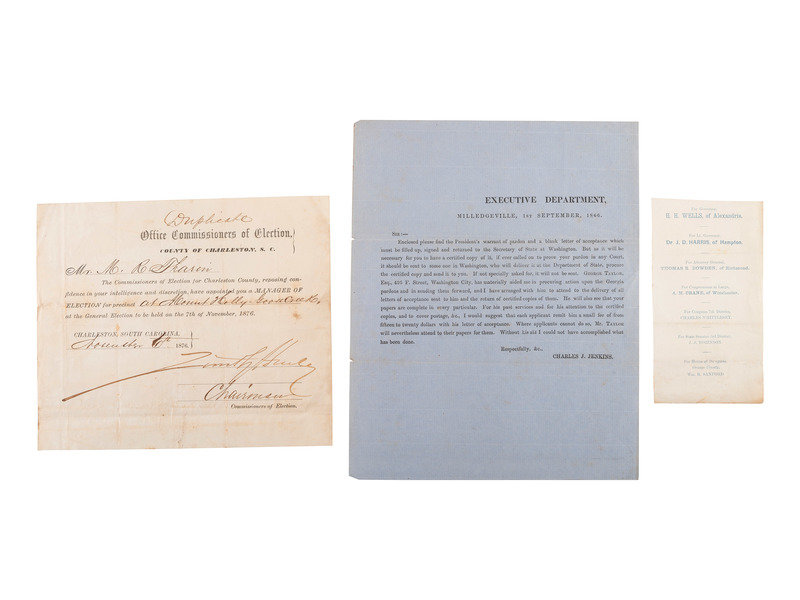 Duplicate
Office Commissioners of Election,
COUNTY OF CHARLESTON, S. C.
Mr. M. R. Tharon
The Commissioners of Election for Charleston County, reposing con-
fidence in your intelligence and discretion, have appointed you a MANAGER OF
ELECTION for precinct at Mount Holly, Goose Creek,
at the General Election to be held on the 7th of November, 1876.
CHARLESTON, SOUTH CAROLINA,
November 1876.
Chairman
Commissioners of Election.
EXECUTIVE DEPARTMENT,
MILLEDGEVILLE, 1ST SEPTEMBER, 1866.
SIR:—
Enclosed please find the President's warrant of pardon and a blank letter of acceptance which
must be filled up, signed and returned to the Secretary of State at Washington. But as it will be
necessary for you to have a certified copy of it, if ever called on to prove your pardon in any Court,
it should be sent to some one in Washington, who will deliver it at the Department of State, procure
the certified copy and send it to you. If not specially asked for, it will not be sent. GEORGE TAYLOR,
Esq., 495 F. Street, Washington City, has materially aided me in procuring action upon the Georgia
pardons and in sending them forward, and I have arranged with him to attend to the delivery of all
letters of acceptance sent to him and the return of certified copies of them. He will also see that your
papers are complete in every particular. For his past services and for his attention to the certified
copies, and to cover postage, &c., I would suggest that each applicant remit him a small fee of from
fifteen to twenty dollars with his letter of acceptance. Where applicants cannot do so, Mr. TAYLOR
will nevertheless attend to their papers for them. Without his aid I could not have accomplished what
has been done.
Respectfully, &c.,
CHARLES J. JENKINS.
For Governor,
H. H. WELLS, of Alexandria.
For Lt. Governor,
Dr. J. D. HARRIS, of Hampton.
For Attorney General,
THOMAS R. BOWDEN, of Richmond.
For Congressman at Large,
A. M. CRANE, of Winchester.
For Congress 7th District,
CHARLES WHITTLESEY.
For State Senator District,
For House of Delegates,
Orange County,
Wm. R.